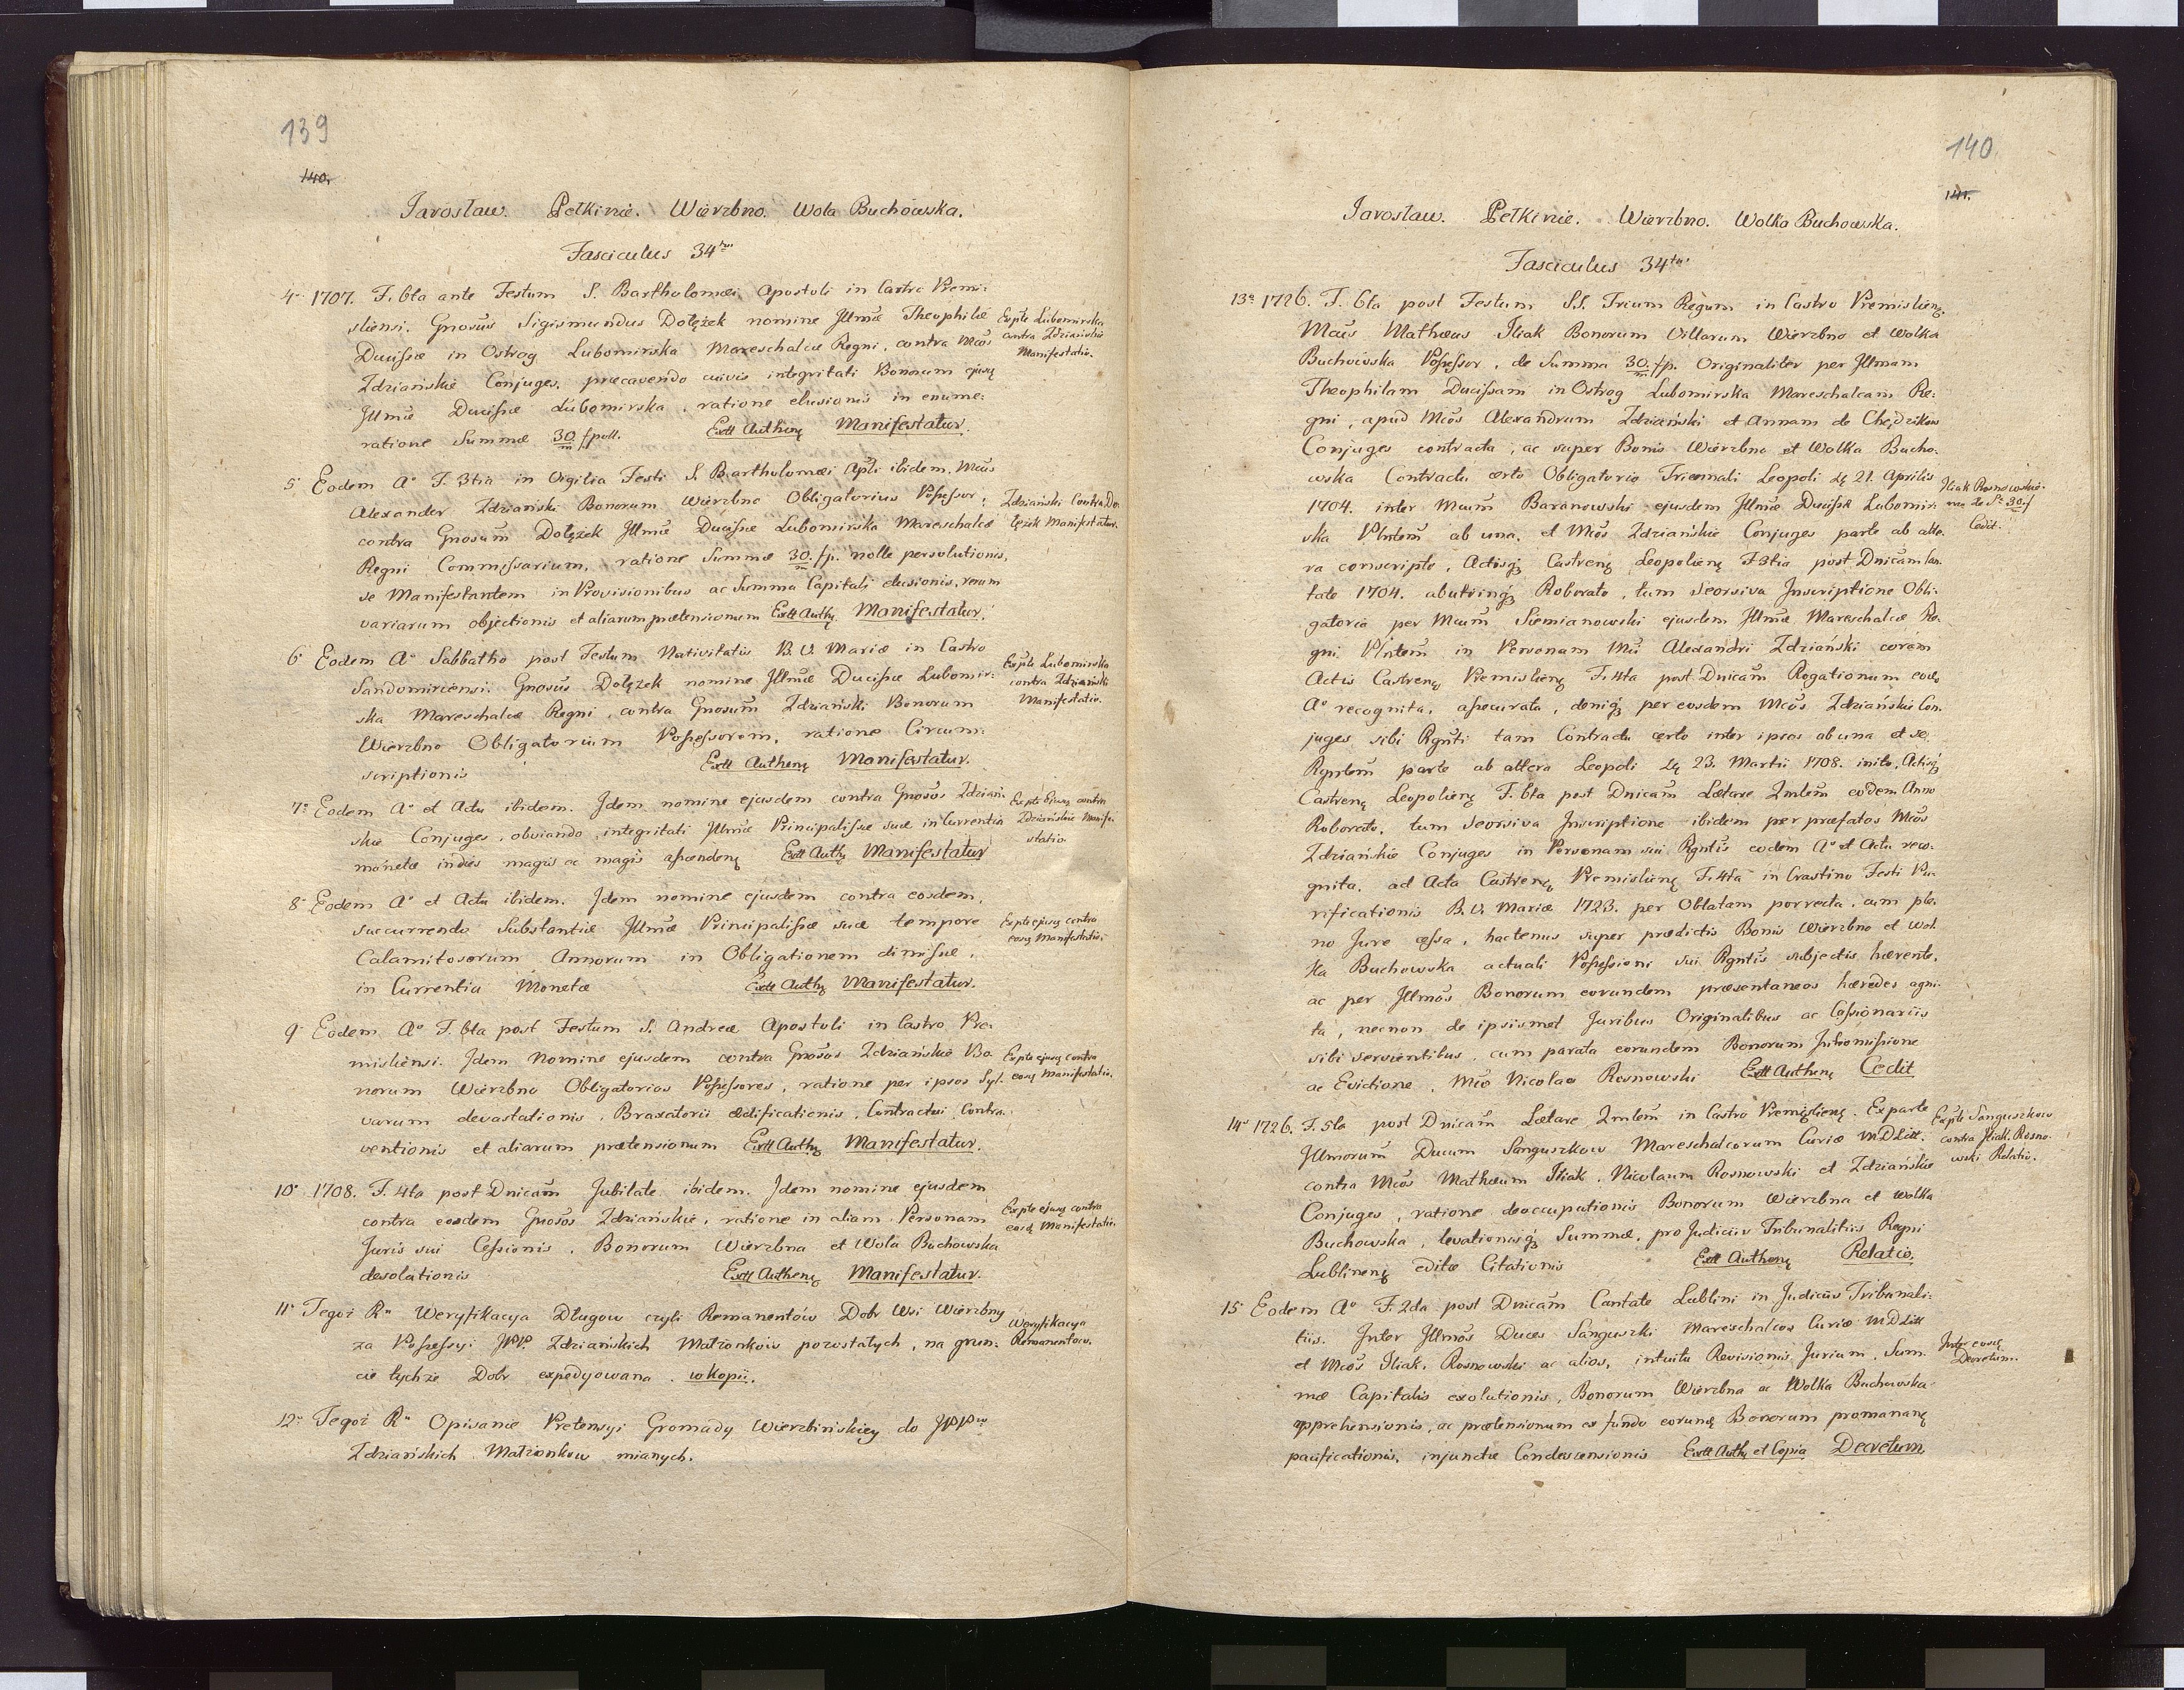 139
140.
Jarosław. Pełkinie. Wierzbno. Wola Buchowska.
Fasciculus 34tus
4º 1707. F. 6ta ante Festum S. Bartholomæi Apostoli in Castro Premi-
sliensi. Gnosus Sigismundus Dołężek nomine Jllmæ Theophilæ
Ducissæ in Ostrog Lubomirska Mareschalcæ Regni, contra Mcos
Zdziańskie Conjuges, præcavendo cuivis integritati Bonorum ejusq
Jllmæ Ducissæ Lubomirska, ratione elusionis in enume-
ratione Summæ 30/m fpoll. Extt Authenq Manifestatur.
Exple Lubomirska
contra Zdziańskie
Manifestatio.
5º Eodem Aº F. 3tia in Vigilia Festi S. Bartholomæi Apli ibidem. Mcus
Alexander Zdziański Bonorum Wierzbna Obligatorius Possessor,
contra Gnosum Dołężek Jllmæ Ducissæ Lubomirska Mareschalcæ
Regni Commissarium, ratione Summæ 30/m fp. nolle persolutionis,
se Manifestantem in Provisionibus ac Summa Capitali elusionis, rerum
variarum objectionis et aliarum prætensionum Extt Authq Manifestatur.
Zdziański Contra Do-
łężek Manifestatur.
6º Eodem Aº Sabbatho post Festum Nativitatis B. V. Mariæ in Castro
Sandomiriensi. Gnosus Dołężek nomine Jllmæ Ducissæ Lubomir-
ska Mareschalcæ Regni, contra Gnosum Zdziański Bonorum
Wierzbno Obligatorium Possessorem, ratione Circum-
scriptionis Extt Authenq Manifestatur.
Exple Lubomirska
contra Zdziański
Manifestatio.
7º Eodem Aº et Actu ibidem. Jdem nomine ejusdem contra Gnosos Zdziań-
skie Conjuges, obviando integritati Jllmæ Principalissæ suæ in Currentia
monetæ indies magis ac magis ascendenq Extt Authq Manifestatur
Exple Ejusq contra
Zdziańskie Manife-
statio
8º Eodem Aº et Actu ibidem. Jdem nomine ejusdem contra eosdem,
succurrendo Substantiæ Jllmæ Principalissæ suæ tempore
Calamitosorum Annorum in Obligationem dimissæ,
in Currentia Monetæ Extt Authq Manifestatur.
Exple ejusq contra
eosq Manifestatio.
9º Eodem Aº F. 6ta post Festum S. Andreæ Apostoli in Castro Pre-
misliensi. Jdem Nomine ejusdem contra Gnosos Zdziańskie Bo-
norum Wierzbno Obligatorios Possessores, ratione per ipsos Syl-
varum devastationis, Braxatorii ædificationis, Contractui Contra-
ventionis et aliarum prætensionum Extt Authq Manifestatur.
Exple ejusq contra
eosq Manifestatio.
10º 1708. F. 4ta post Dnicam Jubilate ibidem. Jdem nomine ejusdem
contra eosdem Gnosos Zdziańskie, ratione in aliam Personam
Juris sui Cessionis, Bonorum Wierzbna et Wola Buchowska
desolationis Extt Authenq Manifestatur.
Exple ejusq contra
eosq Manifestatio.
11º Tegoż Rº Weryfikacya Długow czyli Remanentów Dobr Wsi Wierzbny
za Possessyi JPP. Zdziańskich Małżonków pozostałych, na grun-
cie tychże Dobr expedyowana. w Kopii.
Weryfikacya
Remanentow.
12º Tegoż Rº Opisanie Pretensyi Gromady Wierzbińskiey do JPPw
Zdziańskich Małżonkow mianych.
140
141.
Jarosław. Pełkinie. Wierzbno. Wolka Buchowska.
Fasciculus 34tus
13º 1726. F. 6ta post Festum SS. Trium Regum in Castro Premislienq.
Mcus Mathæus Jliak Bonorum Villarum Wierzbno et Wolka
Buchowska Possessor, de Summa 30/m fp. Originaliter per Jllmam
Theophilam Ducissam in Ostrog Lubomirska Mareschalcam Re-
gni, apud Mcos Alexandrum Zdziański et Annam de Chędzikow
Conjuges contracta, ac super Bonis Wierzbno et Wolka Bucho-
wska Contractu certo Obligatorio Triennali Leopoli dq 21. Aprilis
1704. inter Mcum Baranowski ejusdem Jllmæ Ducissæ Lubomir-
ska Plntem ab una, et Mcos Zdziańskie Conjuges parte ab alte-
ra conscripto, Actisq Castrenq Leopolienq F. 3tia post Dnicam Can-
tate 1704. abutrinq Roborato, tum seorsiva Jnscriptione Obli-
gatoria per Mcum Siemianowski ejusdem Jllmæ Mareschalcæ Re-
gni Plntem in Personam Mci Alexandri Zdziański coram
Actis Castrenq Premislienq F. 4ta post Dnicam Rogationum eodem
Aº recognita, assecurata, deniq per eosdem Mcos Zdziańskie Con-
juges sibi Rgnti tam Contractu certo inter ipsos ab una et se
Rgntem parte ab altera Leopoli dq 23. Martii 1708. inito, Actisq
Castrenq Leopolienq F. 6ta post Dnicam Lætare Qmlem eodem Anno
Roborato, tum seorsiva Jnscriptione ibidem per præfatos Mcos
Zdziańskie Conjuges in Personam sui Rgntis eodem Aº et Actu reco-
gnita, ad Acta Castrenq Premislienq F. 4ta in Crastino Festi Pu-
rificationis B. V. Mariæ 1723. per Oblatam porrecta, cum ple-
no Jure cessa, hactenus super prædictis Bonis Wierzbno et Wol-
ka Buchowska actuali Possessioni sui Rgntis subjectis hærente,
ac per Jllmos Bonorum eorundem præsentaneos hæredes agni-
ta, necnon de ipsismet Juribus Originalibus ac Cessionariis
sibi servientibus, cum parata eorundem Bonorum Jntromissione
ac Evictione, Mco Nicolao Rosnowski Extt Authenq Cedit
Jliak Rosnowskie-
mu de Sª 30/m f
Cedit.
14º 1726. F. 5ta post Dnicam Lætare Qmlem in Castro Premislienq. Ex parte
Jllmorum Ducum Sanguszkow Mareschalcorum Curiæ M.D.Litt.
contra Mcos Mathæum Jliak, Nicolaum Rosnowski et Zdziańskie
Conjuges, ratione deoccupationis Bonorum Wierzbna et Wolka
Buchowska, levationisq Summæ, pro Judiciis Tribunalitiis Regni
Lublinenq editæ Citationis Extt Authenq Relatio.
Exple Sanguszkow
contra Jliak, Rosno-
wski Relatio.
15º Eodem Aº F. 2da post Dnicam Cantate Lublini in Judiciis Tribunali-
tiis. Jnter Jllmos Duces Sanguszki Mareschalcos Curiæ M.D.Litt
et Mcos Jliak, Rosnowski ac alios, intuitu Revisionis Jurium, Sum-
mæ Capitalis exolutionis, Bonorum Wierzbna ac Wolka Buchowska
apprehensionis, ac prætensionum ex fundo eorunq Bonorum promananq
pacificationis, injunctæ Condescensionis Extt Authq et Copia Decretum
Jnter eosq
Decretum.